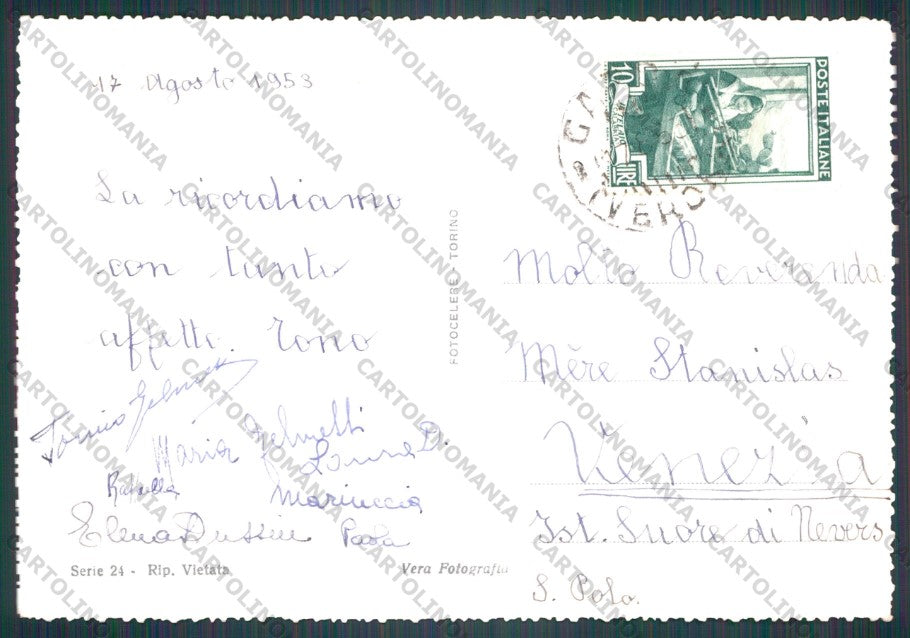 17 Agosto 1953
La ricordiamo
con tanto
affetto. Tono
Maria Zelmetti
Laura D.
Raffaella
Mariuccia
Elena Dussin
Paola
Serie 24 - Rip. Vietata
Vera Fotografia
FOTOCELERE - TORINO
POSTE ITALIANE
10
LIRE
Molto Reverenda
Mère Stanislas
Venezia
Ist. Suore di Nevers
S. Polo.
CARTOLINOMANIA